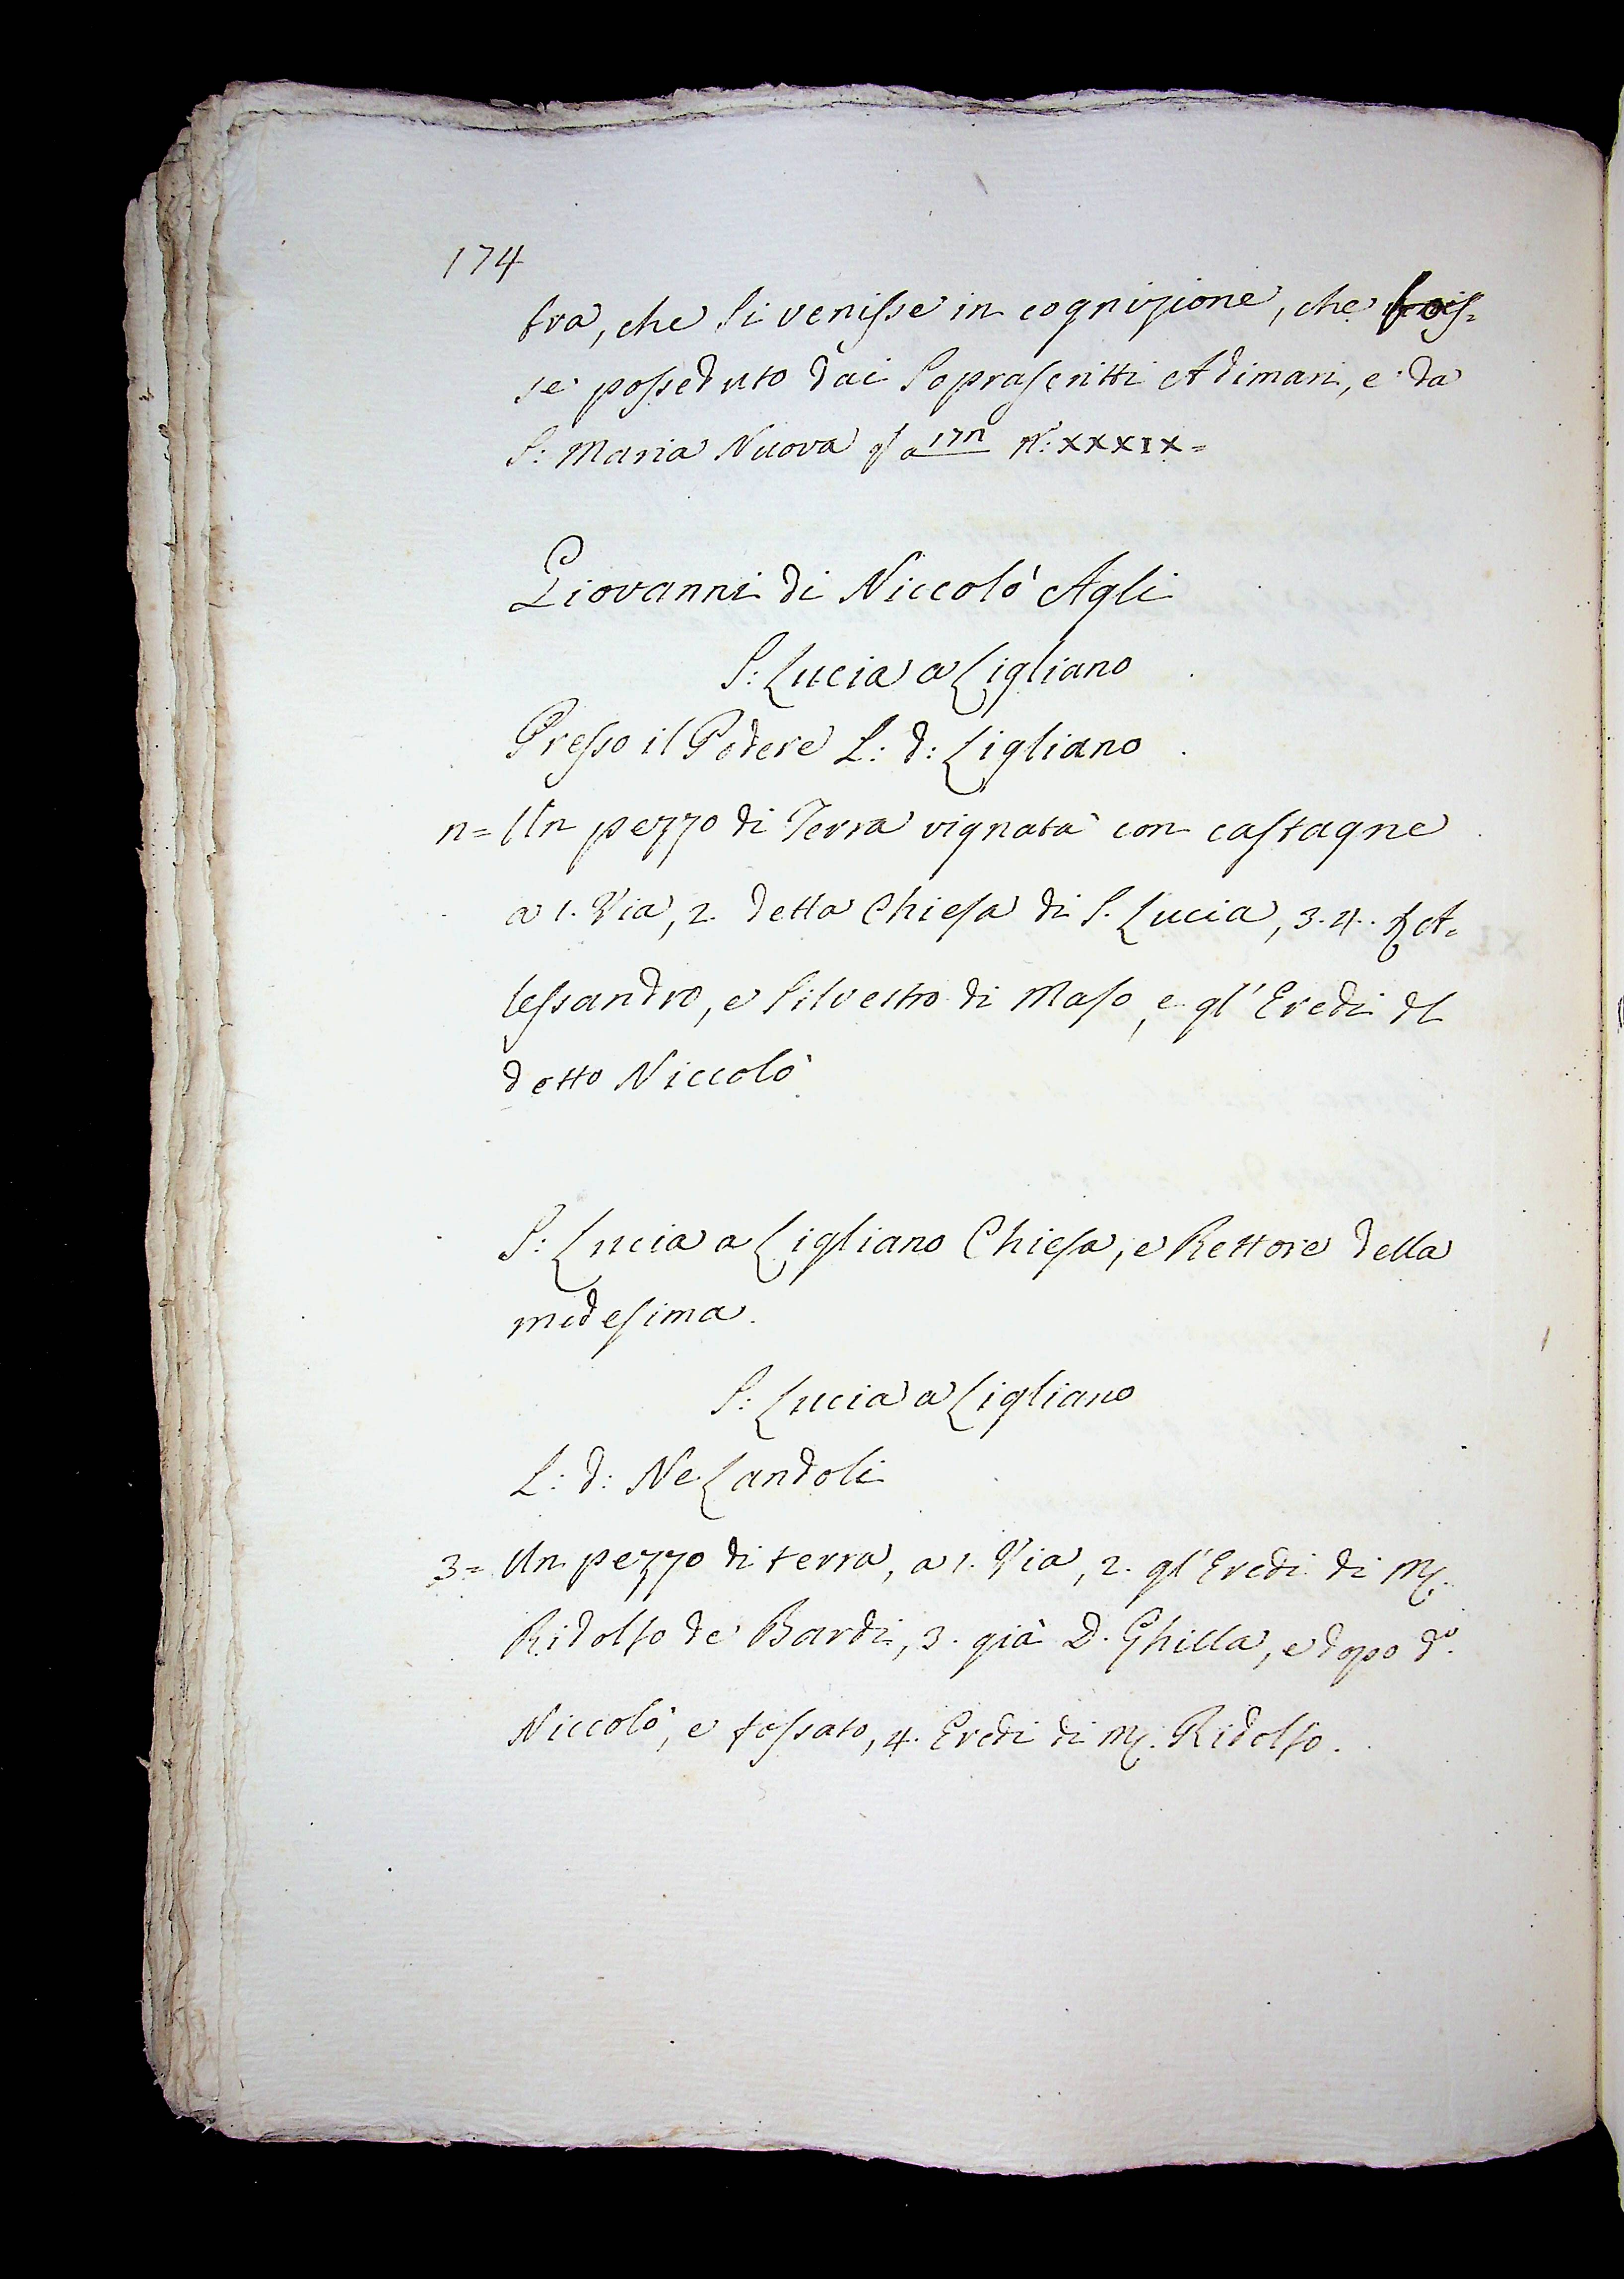 174
tra, che si venisse in cognizione, che fos=
se posseduto dai soprascritti Adimari, e da
S: Maria Nuova a 171 N: XXXIX=
Giovanni di Niccolò Agli
S: Lucia a Ligliano
Presso il Podere L: d: Ligliano
n= Un pezzo di Terra vignata con castagne
a 1. Via, 2. detta Chiesa di S. Lucia, 3. 4. A=
lessandro, e Silvestro di Maso, e gl' Eredi del
detto Niccolò
S: Lucia a Ligliano Chiesa, e Rettore della
medesima.
S: Lucia a Ligliano
L: d: Ne Landoli
3= Un pezzo di terra, a 1. Via, 2. gl' Eredi di M.
Ridolfo de Bardi, 3. già D. Ghilla, e dopo do.
Niccolò, e fossato, 4. Eredi di M. Ridolfo.